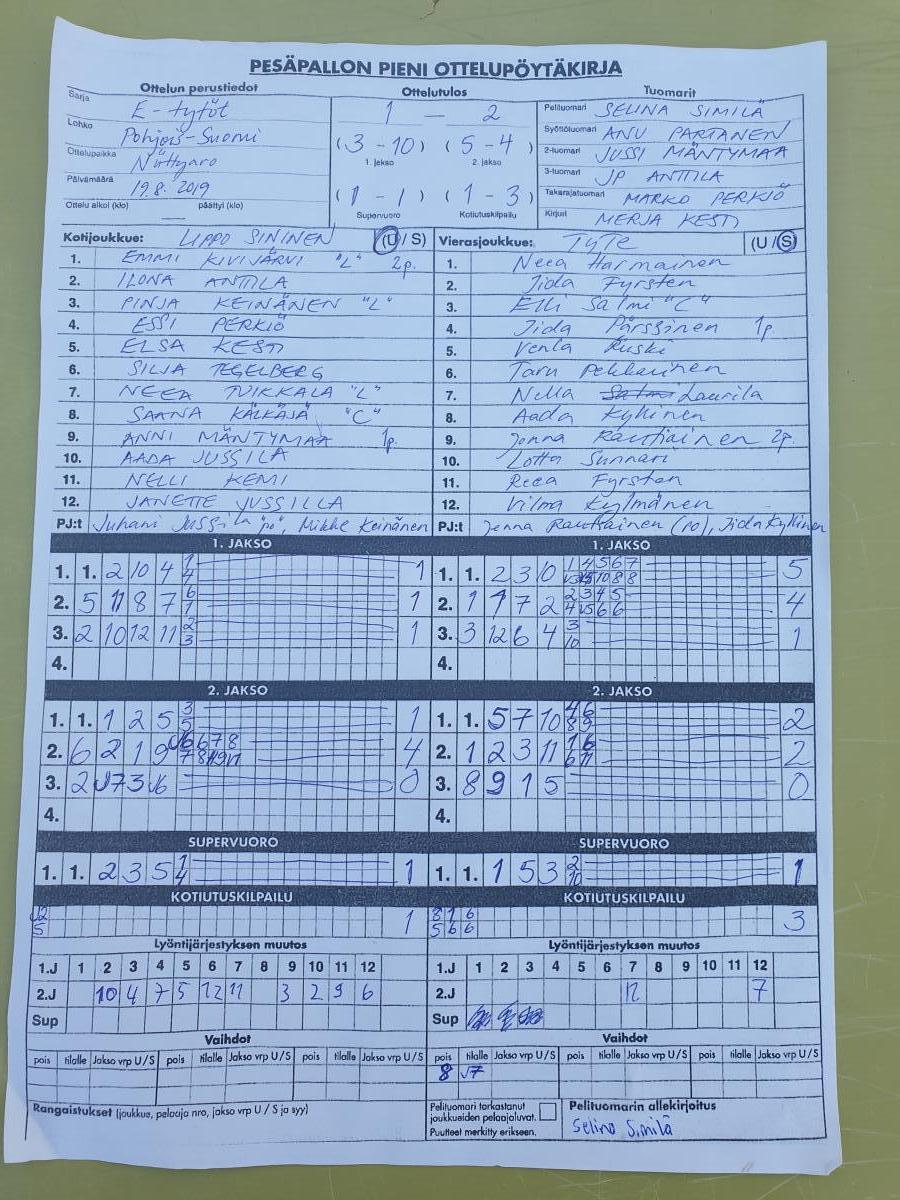 PESÄPALLON PIENI OTTELUPÖYTÄKIRJA
Ottelun perustiedot
Sarja E-tytöt
Lohko Pohjois-Suomi
Ottelupaikka
Päivämäärä 19.8.2019
Ottelu alkoi (klo) — päättyi (klo)
Ottelutulos
1 — 2
(3 - 10) (5 - 4)
1. jakso 2. jakso
(1 - 1) (1 - 3)
Supervuoro Kotiutuskilpailu
Tuomarit
Pelituomari SELINA SIMILÄ
Syöttötuomari ANU PARTANEN
2-tuomari JUSSI MÄNTYMAA
3-tuomari JP ANTTILA
Takarajatuomari MARKO PERKIÖ
Kirjuri MERJA KESTI
Kotijoukkue: LIPPO SININEN (U/S)
1. EMMI KIVIJÄRVI "L" 2p.
2. ILONA ANTTILA
3. PINJA KEINÄNEN "L"
4. ESSI PERKIÖ
5. ELSA KESTI
6. SILJA TEGELBERG
7. NEEA TUIKKALA "L"
8. SAANA KÄLKÄJÄ "C"
9. ANNI MÄNTYMAA 1p.
10. AADA JUSSILA
11. NELLI KEMI
12. JANETTE JUSSILLA
PJ:t Juhani Jussila "pj", Mikke Keinänen
Vierasjoukkue: TyTe (U/S)
1. Neea Harmainen
2. Jida Fyrsten
3. Elli Salmi "C"
4. Jida Pärssinen 1p.
5. Venla Ruski
6. Taru Pekkarinen
7. Nella Salmi Laurila
8. Aada Kyllinen
9. Jonna Rautiainen 2p.
10. Lotta Sunnari
11. Reea Fyrsten
12. Vilma Kylmänen
PJ:t Jenna Rautiainen (10), Jida Kyllinen
1. JAKSO
1. 1. 2 10 4 1
4 1
2. 5 11 8 7 6
1 1
3. 2 10 12 11 2
3 1
4.
1. JAKSO
1. 1. 2 3 10 1 4 5 6 7
5
2. 1 1 7 2 2 3 4 5
4
3. 3 12 6 4 3
10 1
4.
2. JAKSO
1. 1. 1 2 5 3
5 1
2. 6 2 1 9 4
3. 2 J7 3 J6 0
4.
2. JAKSO
1. 1. 5 7 10 4 6
8 9 2
2. 1 2 3 11 1 6
6 11 2
3. 8 9 1 5 0
4.
SUPERVUORO
1. 1. 2 3 5 1
4 1
SUPERVUORO
1. 1. 1 5 3 2
10 1
KOTIUTUSKILPAILU
J2
5 1
KOTIUTUSKILPAILU
8 1 6
5 6 6 3
Lyöntijärjestyksen muutos
1.J 1 2 3 4 5 6 7 8 9 10 11 12
2.J 10 4 7 5 12 11 3 2 9 6
Sup
Lyöntijärjestyksen muutos
1.J 1 2 3 4 5 6 7 8 9 10 11 12
2.J 12 7
Sup
Vaihdot
pois tilalle Jakso vrp U/S pois tilalle Jakso vrp U/S pois tilalle Jakso vrp U/S
Vaihdot
pois tilalle Jakso vrp U/S pois tilalle Jakso vrp U/S pois tilalle Jakso vrp U/S
8 J7
Rangaistukset (joukkue, pelaaja nro, jakso vrp U / S ja syy)
Pelituomari tarkastanut
joukkueiden pelaajaluvat.
Puutteet merkitty erikseen.
Pelituomarin allekirjoitus
Selina Similä